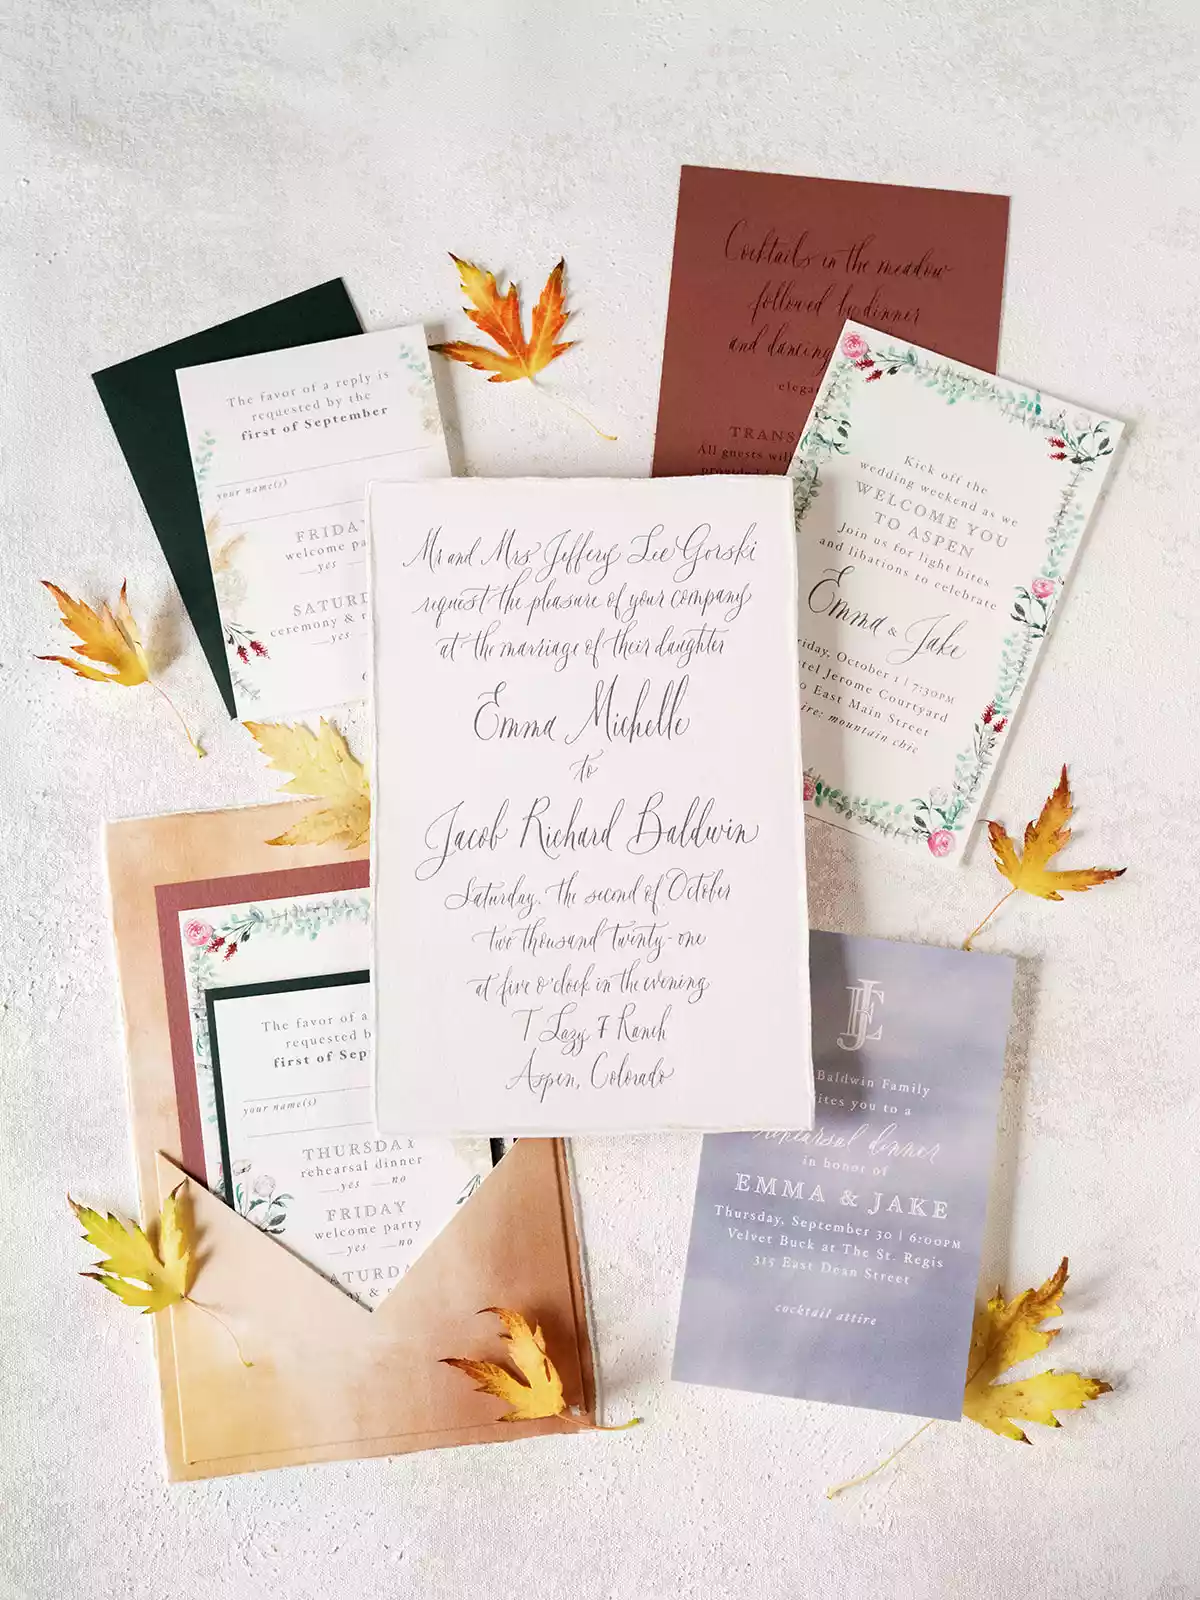 Cocktails in the meadow
followed by dinner
and dancing
TRANS
All guests will
The favor of a reply is
requested by the
first of September
your name(s)
FRIDAY
welcome pa
yes
SATURD
ceremony & r
yes
Kick off the
wedding weekend as we
WELCOME YOU
TO ASPEN
Join us for light bites
and libations to celebrate
Emma & Jake
riday, October 1 | 7:30PM
tel Jerome Courtyard
0 East Main Street
ire: mountain chic
Mr and Mrs. Jeffery Lee Gorski
request the pleasure of your company
at the marriage of their daughter
Emma Michelle
to
Jacob Richard Baldwin
Saturday, the second of October
two thousand twenty-one
at five o'clock in the evening
T Lazy 7 Ranch
Aspen, Colorado
The favor of a
requested b
first of Sep
your name(s)
THURSDAY
rehearsal dinner
yes no
FRIDAY
welcome party
yes no
ATURDA
JE
Baldwin Family
ites you to a
rehearsal dinner
in honor of
EMMA & JAKE
Thursday, September 30 | 6:00PM
Velvet Buck at The St. Regis
315 East Dean Street
cocktail attire